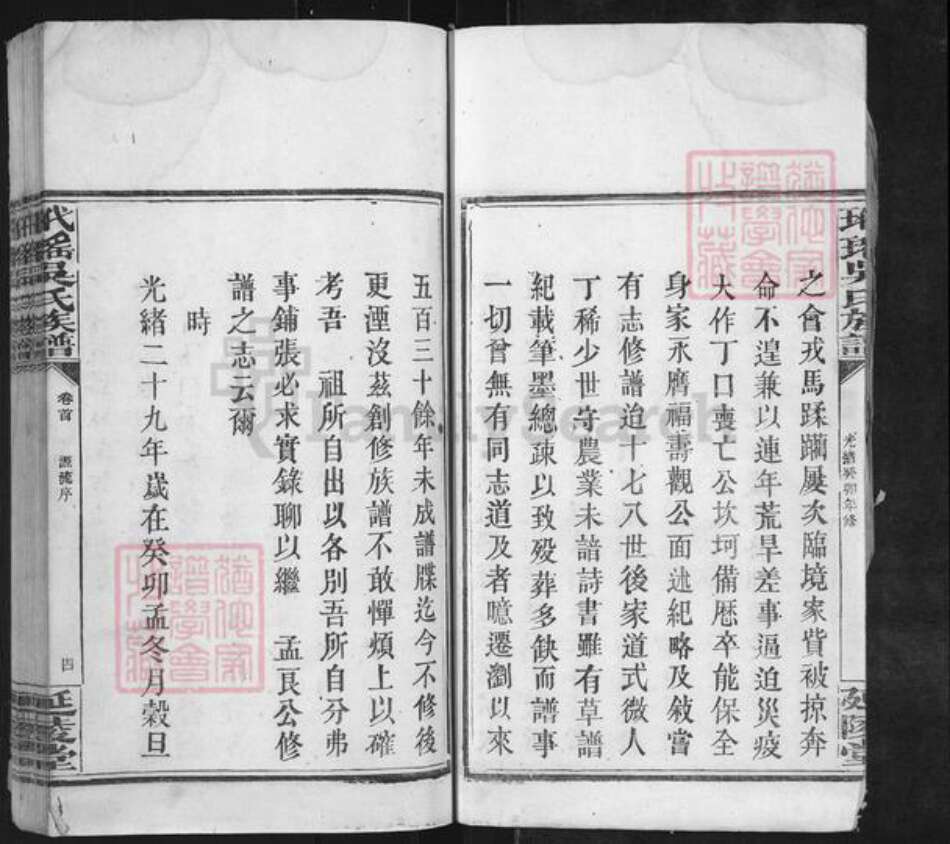 之會戎馬蹂躪屢次臨境家貲被掠奔
命不遑兼以連年荒旱差事逼迫災疫
大作丁口喪亡公坎坷備歷卒能保全
身家永膺福壽觀公面述紀略及敍嘗
有志修譜迨十七八世後家道式微人
丁稀少世守農業未諳詩書雖有草譜
紀載筆墨總疎以致歿葬多缺而譜事
一切曾無有同志道及者噫遷瀏以來
光緒癸卯年修
五百三十餘年未成譜牒迄今不修後
更湮沒茲創修族譜不敢憚煩上以確
考吾 祖所自出以各別吾所自分弗
事鋪張必求實錄聊以繼 孟艮公修
譜之志云爾
時
光緒二十九年歲在癸卯孟冬月榖旦
吳氏族譜
卷首
源流序
四
延陵堂
FamilySearch